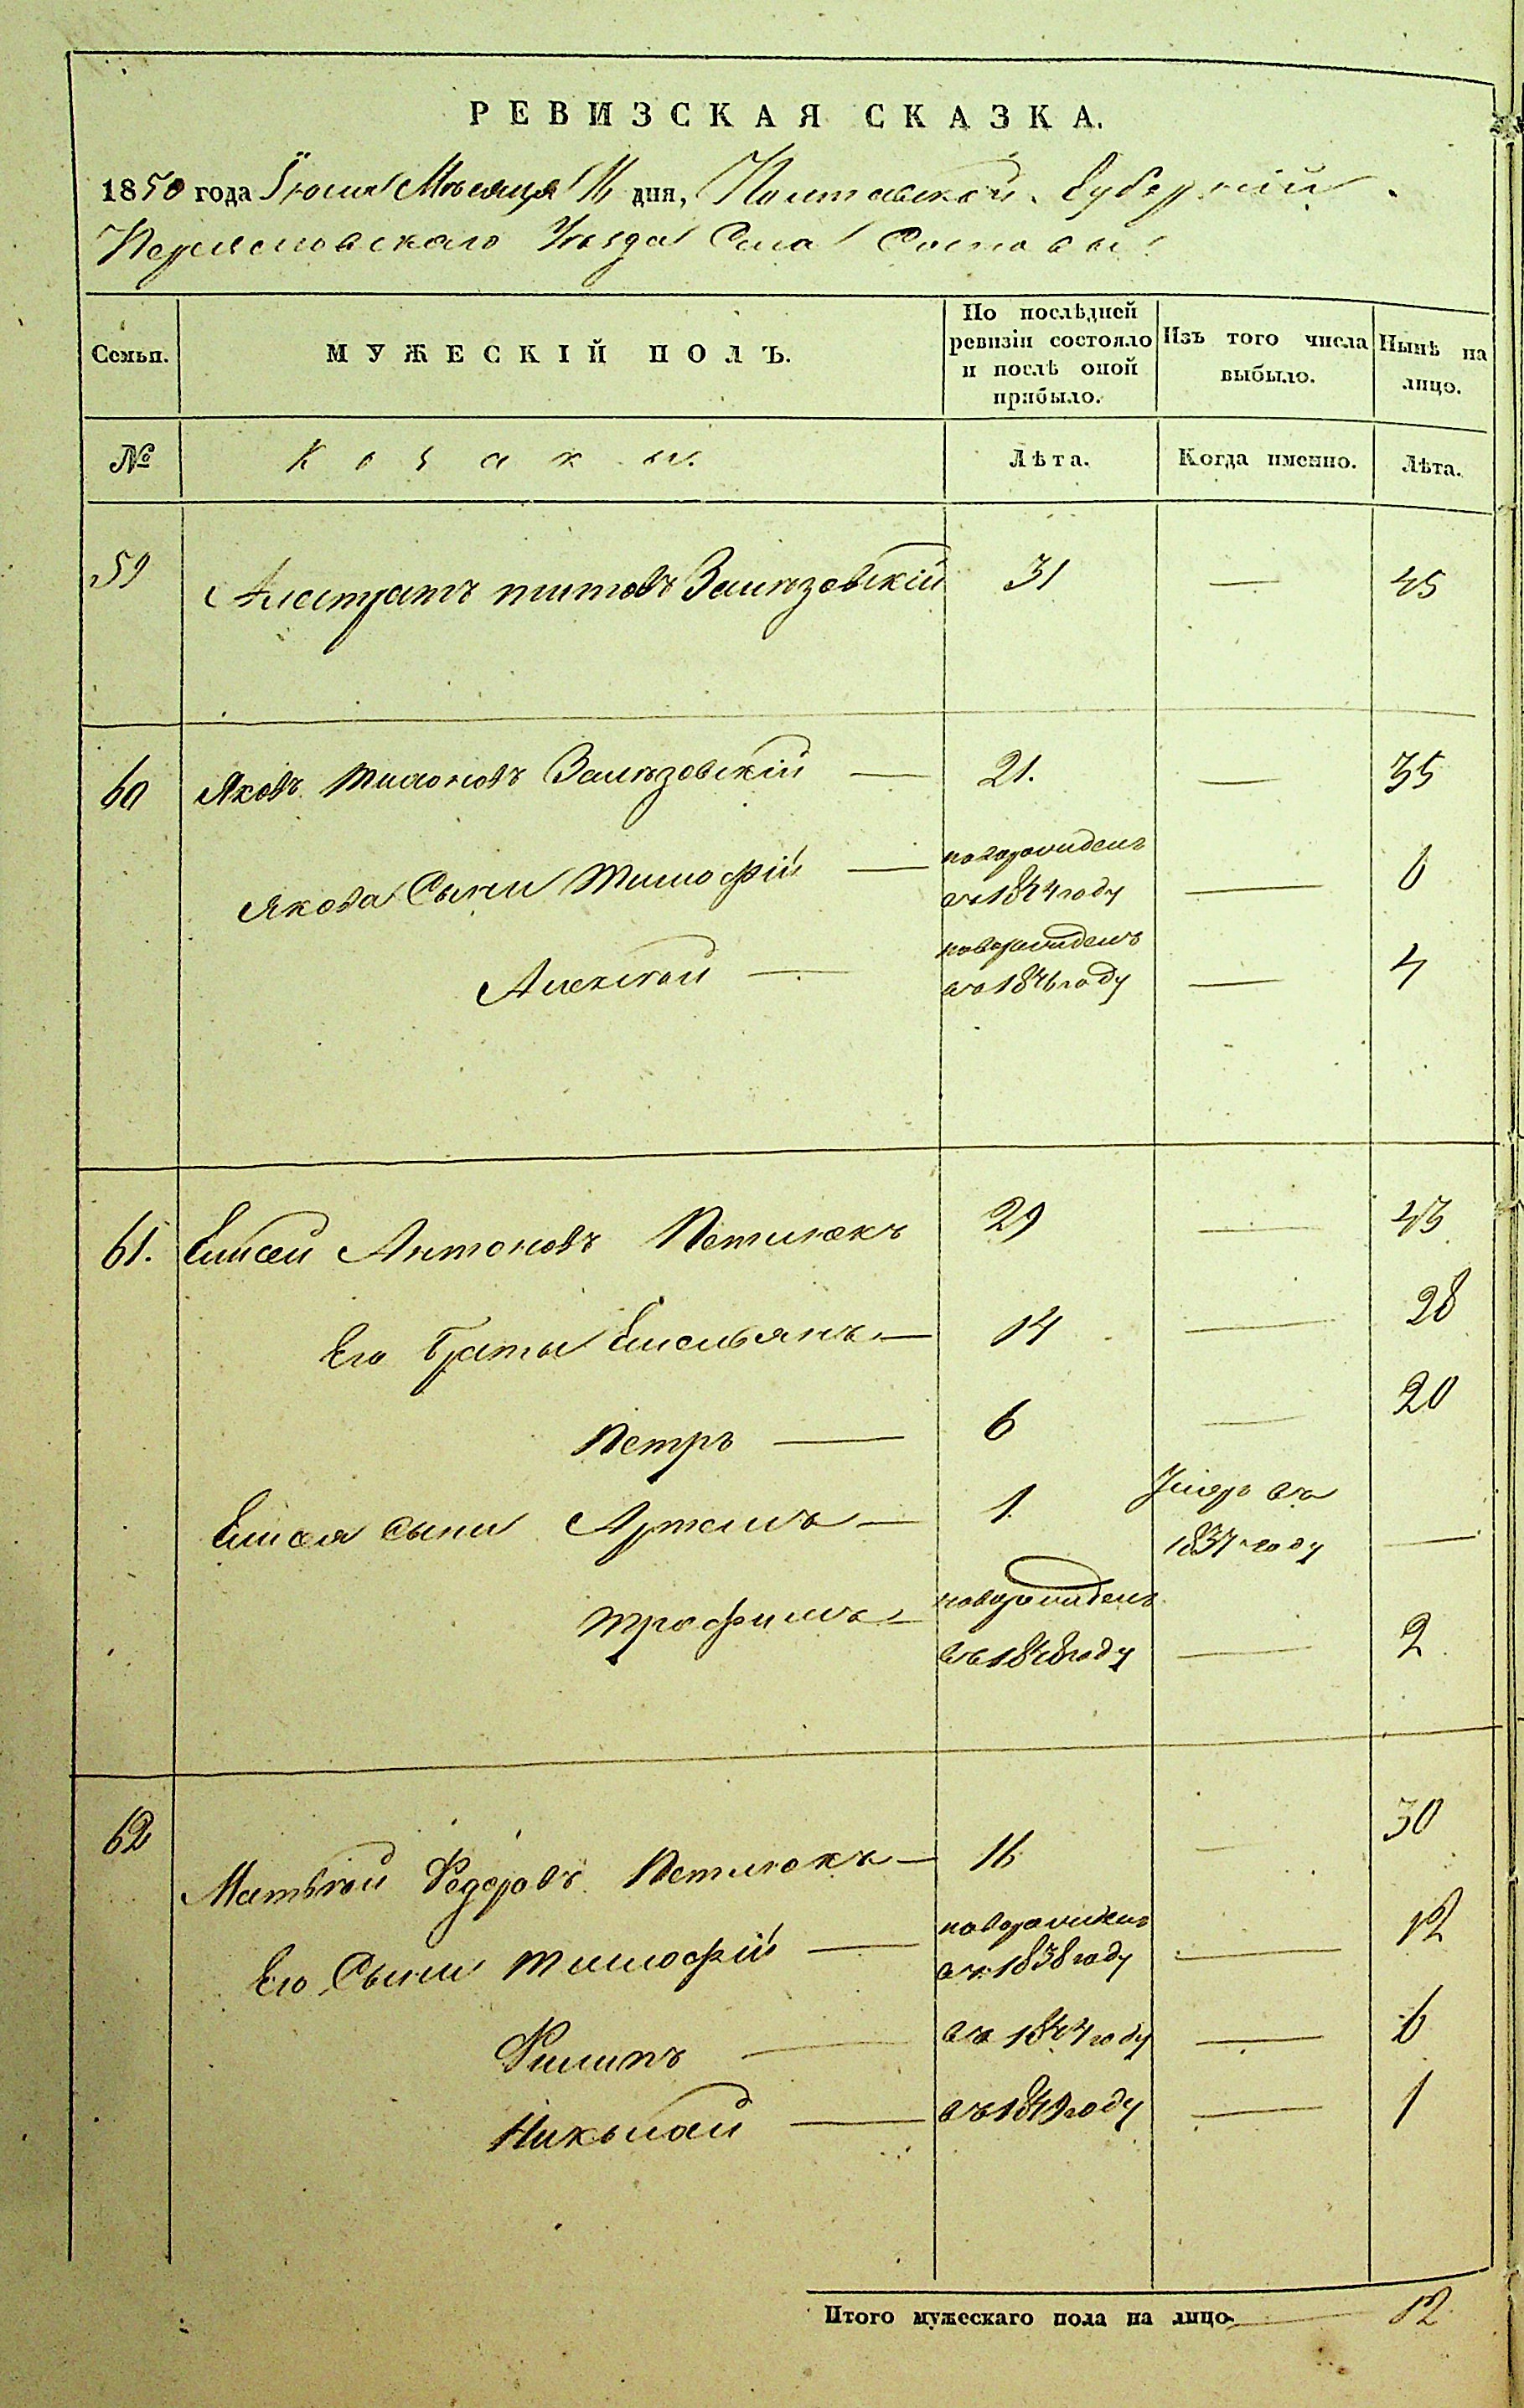 РЕВИЗСКАЯ СКАЗКА.
1850 года Іюля Мѣсяца 16 дня, Полтавской Губерніи
Переяславскаго Уѣзда Села Сосновы
Семьи.
МУЖЕСКІЙ ПОЛЪ.
По послѣдней ревизіи состояло и послѣ оной прибыло.
Изъ того числа выбыло.
Нынѣ на лицо.
№ Козаки. Лѣта. Когда именно. Лѣта.
59 Титовъ Залѣзовскій 31 — 45
60 Яковъ Залѣзовскій — 21. — 35
Якова Сыны Тимофій — новорожденъ
въ 1844 году — 6
Алексѣй — новорожденъ
въ 1846 году — 4
61. Елисей Антоновъ Петлюкъ 29 — 43
Его Браты Емельянъ — 14 — 28
Петръ — 6 — 20
Елисея сыны Артемъ — 1 Умеръ въ
1837 году —
Трофимъ — новорожденъ
въ 1848 году — 2
62 Матвѣй Федоровъ Петлюкъ — 16 — 30
Его Сыны Тимофій — новорожденъ
въ 1838 году — 12
Филипъ — въ 1844 году — 6
Николай — въ 1849 году — 1
Итого мужескаго пола на лицо — 12